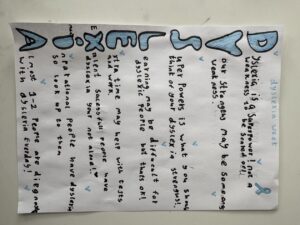 dyslexia week
Dyslexia is a Superpower not a
weakness to be Scared of!!
Your Strengths may be Someones
weakness!
Super Powers is what you should
think of your dyslexia
Learning may be difficult for
dyslexic people but thats ok!
Extra time may help with tests
and work.
X Sucsessful people have
dyslexia your not alone!
Inspirational people have dyslexia
so look up to them
Almost 1-2 people are
with dyslexia everday!